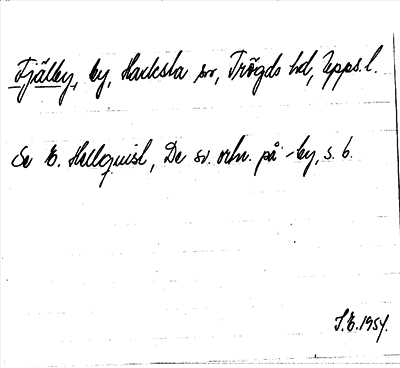 Fjälby, by, Haxlesta sn, Trögds hd, Upps. l.
Se E. Hellquist, De sv. ortn. på -by, s. 6.
S.E. 1954.